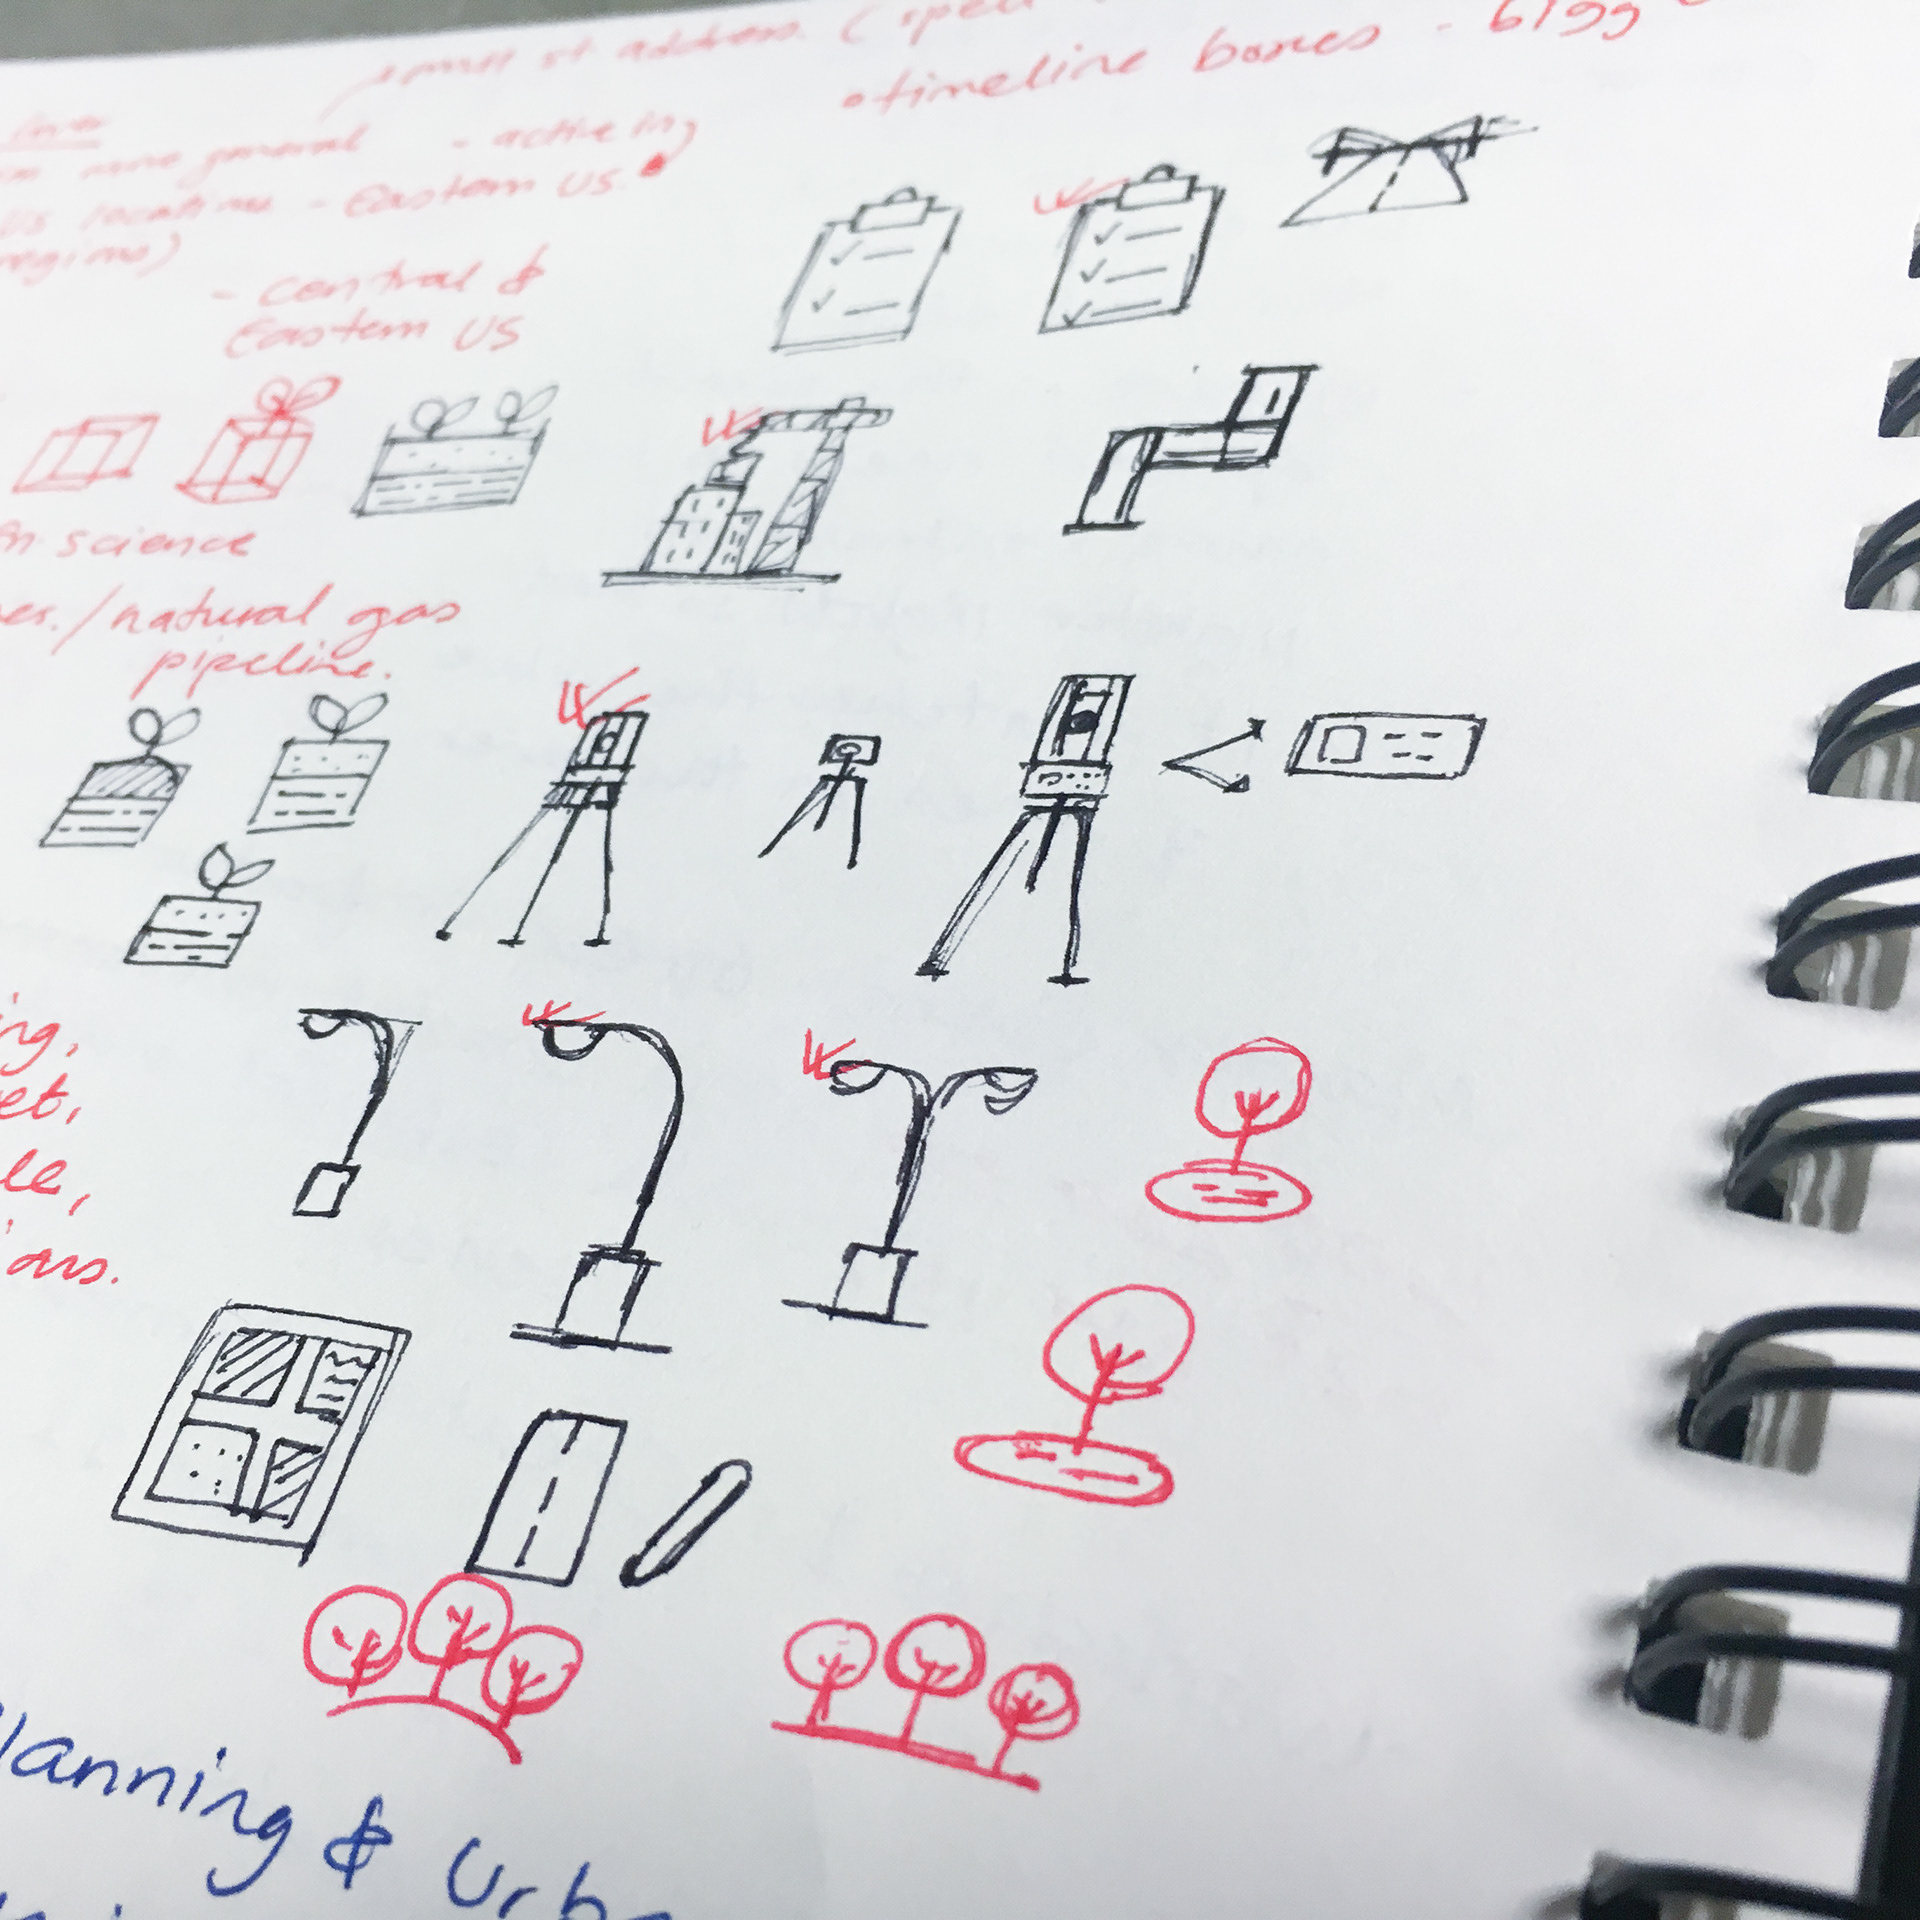 st address. (
• timeline boxes - bigg
more general - active in
US locations - Eastern US.
regions)
- Central &
Eastern US
science
/natural gas
pipeline.
ing,
et,
le,
ons.
lanning & Urb